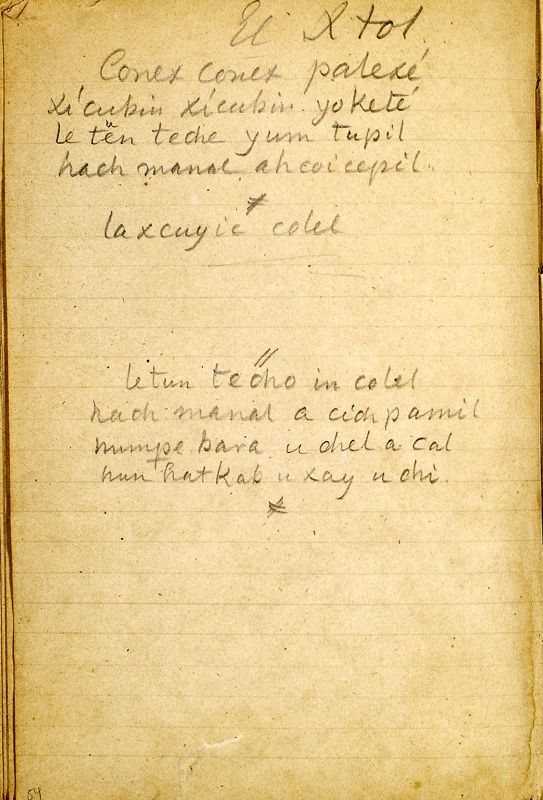 El Xtol
Conex conex palexé
xícubin xícubin yoketé
le tën teche yum tupil
hach manal ahcoicepil.
laxcuyic colel
letun techo in colel
hach manal a cichpamil
humppe bara u chel a cal
hun hatkab u xay u chi.
54